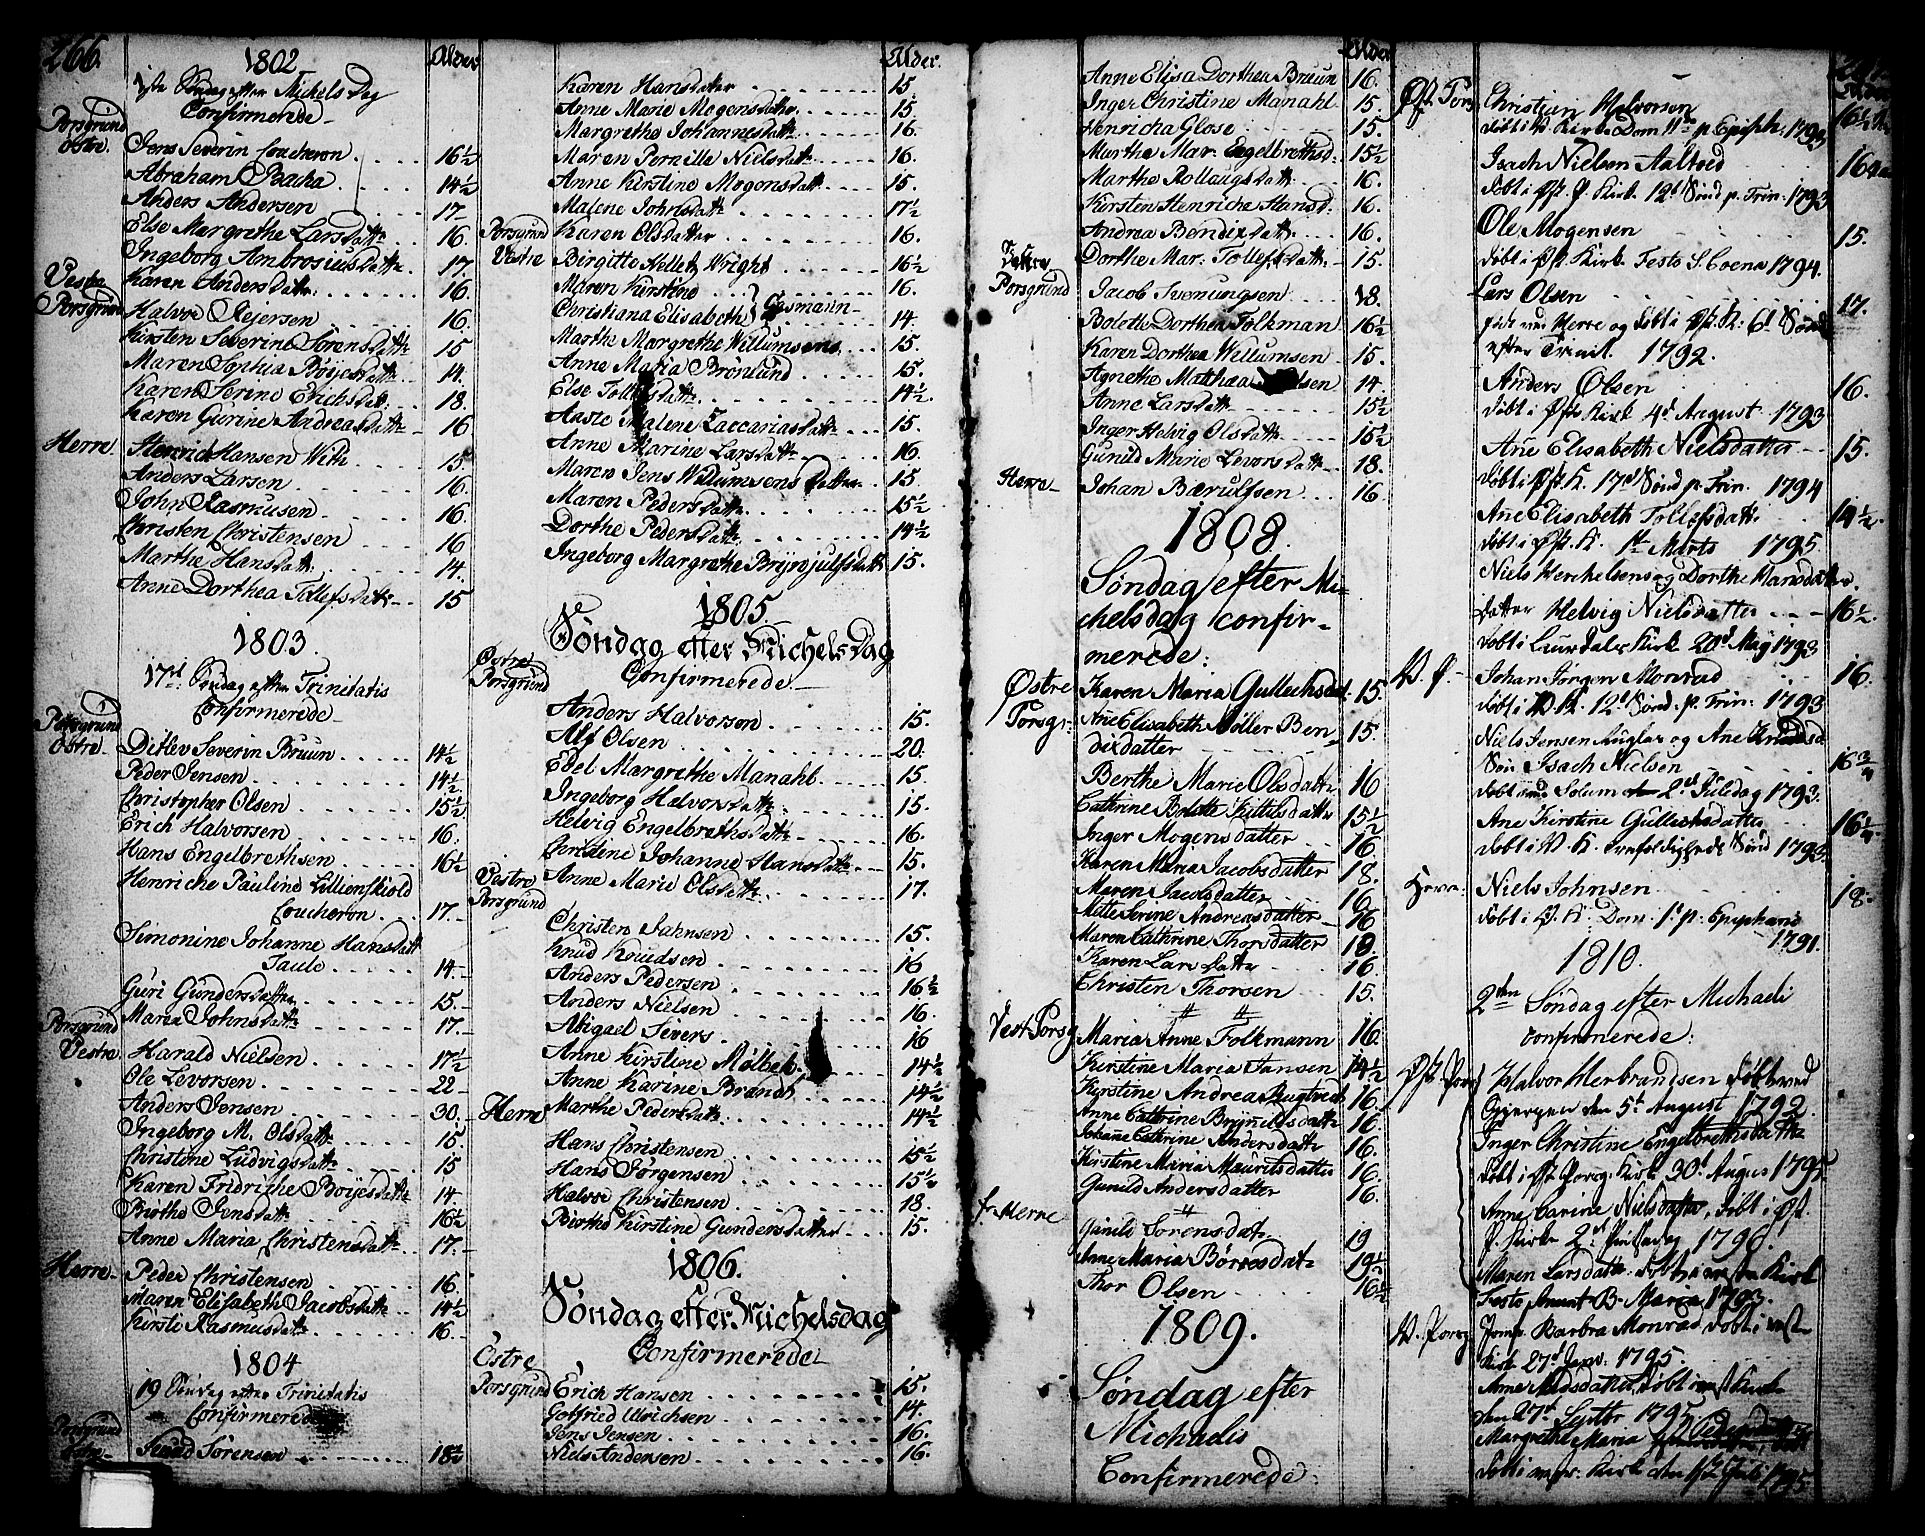 266.
1802
Alder
1ste Søndag efter Mickels Dag
Confirmerede
Porsgrund
østre.
Jens Severin Coucheron. 16½
Abraham Backa 14½
Anders Andersen 17
Else Margrethe Larsdattr 16.
Ingeborg Ambrosiusdattr. 17.
Vestre Porsgrund
Karen Andersdattr. 16.
Halvor Rejersen 16.
Kirsten Severine Sørensdattr 15
Maren Sophia Böyesdattr 14.
Karen Serine Erichsdattr. 18.
Karen Gurine Andreasdattr 16
Herre
Henrich Hansen With 15
Anders Larsen 16.
John Rasmusen 16.
Christen Christensen 16
Marthe Hansdattr 14.
Anne Dorthea Tollefsdattr 15
1803.
17d: Søndag efter Trinitatis
Confirmerede
Porsgrund
Østre.
Ditlev Severin Bruun 14½
Peder Jensen 14½
Christopher Olsen 15½
Erich Halvorsen 16.
Hans Engelbrethsen 16½
Henriche Pauline Lillienskiold
Coucheron. 17.
Simonine Johanne Hansdattr
Taule 14.
Guri Gundersdatter 15.
Maren Johnsdattr 17.
Porsgrund
Vestre.
Harald Nielsen 17½
Ole Levorsen 22
Anders Jensen 30.
Ingeborg M. Olsdattr 15.
Christine Ludvigsdattr 15
Karen Fridriche Boÿesdattr 14
Birthe Jensdattr 16½
Anne Maria Christensdattr 17.
Herre
Peder Christensen 16.
Maren Elisabeth Jacobsdattr 14½
Kirsti Rasmusdattr 16.
1804
19 Søndag efter Trinitatis
Confirmerede
Porsgrund
østre
Svend Sørensen 18½
Alder.
Karen Hansdatter 15.
Anne Marie Mogensdattr. 15.
Margrethe Johannesdattr 16.
Maren Pernille Nielsdattr 16.
Anne Kirstine Mogensdattr 15.
Malene Johnsdattr 17½
Porsgrund
Vestre
Karen Olsdatter 16.
Birgitte Wright 16½
Maren Kirstine 16.
Christiana Elisabeth 14.
Marthe Margrethe Willumsens 15.
Anne Maria Brönlund 15.
Else Tollefsdattr. 14½.
Aaste Malene Zaccariasdattr 15.
Anne Marine Larsdattr 16.
Maren Jens Willumsens Datter 15
Maren Pedersdattr 15½
Dorthe Pedersdattr. 14½
Ingeborg Margrethe Brynjulfsdattr 15.
1805.
Søndag efter Michels Dag
Confirmerede.
Østre
Porsgrund
Anders Halvorsen 15.
Alf Olsen 20.
Edel Margrethe Manahl. 15.
Ingeborg Halvorsdattr. 15.
Helvig Engelbrethsdattr 16.
Christine Johanne Hansdattr 15.
Vestre
Porsgrund
Anne Marie Olsdattr. 17.
Christen Jahnsen 15.
Knud Knudsen 16
Anders Pedersen 16½
Anders Nielsen 16.
Abigael Severs. 16
Anne Kirstine Mølbek. 14½
Anne Karine Brandt 14½
Herre
Marthe Pedersdattr. 14½
Hans Christensen 15½
Hans Jörgensen 15½
Halvor Christensen 18.
Birthe Kirstine Gundersdatter 15.
1806.
Søndag efter Michelsdag
Confirmerede
Östre
Porsgrund
Erich Hansen 15.
Gotfried Ulrichsen 14.
Jens Jensen 16.
Niels Andersen 16.
Alder
Anne Elisa Dorthea Bruun 16.
Inger Christine Manahl 15.
Henricha Glose 15.
Marthe Mar. Engelbrethsd. 15½
Marthe Rollaugsdattr 16.
Kirsten Henricha Hansd. 16.
Andrea Bendixdattr 16.
Dorthe Mar. Tollefsdattr 15.
Vestre
Porsgrund
Jacob Svenungsen 18.
Bolette Dorthea Folkman 16½
Karen Dorthea Willumsen 15.
Agnethe Mathea 14.
Anne Larsdattr 15½
Inger Helvig Olsdattr 15½
Gunild Marie Levorsdattr 18.
Herre
Johan Bærulfsen 16.
1808.
Søndag efter Mi-
chelsdag confir-
merede:
Østre
Porsgr:
Karen Maria Gullichsdat. 15.
Ane Elisabeth Møller Ben-
dixdatter 15.
Berthe Marie Olsdattr 16
Cathrine Bolette Kittilsdatter 15½
Inger Mogensdatter 16
Karen Maria Jacobsdatter 18.
Maren Jacobsdatter 16
Mette Serine Andreasdatter 16
Maren Cathrine Thorsdatter 18
Karen Larsdatter 16
Christen Thorsen 15.
Vest Porsg
Maria Anne Folkmann 16.
Kirstine Maria Jansen 14½
Kirstine Andrea 16.
Anne Cathrine Brynildsdattr 16
Johanne Cathrine Andersdattr 16.
Kirstine Maria Mauritsdatter 16.
Gunild Andersdatter 16.
f. Herre
Gunild Sørensdat. 19
Anne Maria Börresdat. 19½
Thor Olsen 16½
1809.
Søndag efter
Michaelis
Confirmerede:
Øst Pors
Christian Halvorsen 16½
døbt i V. Kirke Dom 11te p. Epiph. 1793
Isach Nielsen Aaltved 16
døbt i Øst. P. Kirk. 12d Sönd p. Trin. 1793
Ole Mogensen 15.
døbt i Øst. Kirk. Festo S. Coena 1794.
Lars Olsen 17.
Føde ved Herre og døbt i Øst. K: 6d Sönd
efter Trinit. 1792.
Anders Olsen 16.
døbt i Øst Kirk 4d August 1793
Ane Elisabeth Nielsdatter 15.
døbt i Øst. K. 17d Sönd p. Trin. 1794
Ane Elisabeth Tollefsdattr 14½.
døbt i Øst. K. 1st Marts 1795
Niels Herchelsens og Dorthe Hansdattrs
Datter Helvig Nielsdatter 16½
døbt i Kirk 20d Maÿ 1793
V. P.
Johan Jörgen Monrad 16.
døbt i V. K. 12d Sönd. p. Trin: 1793
Niels Jensen Kuglar og Ane
Søn Isach Nielsen 16¾
døbt ved Solum 2d Juledag 1793.
Ane Kirstine Gullichsdatter 16¼
døbt i V. K. Trefoldigheds Sönd 1793.
Herre:
Niels Johnsen 18.
døbt i V. K. Dom. 1t p: Epiphani
1791.
1810.
2den Søndag efter Michaeli
confirmerede:
Øst. Pors
Halvor Herbrandsen døbt ved
Gjerpen den 5t August 1792.
Inger Christine Engelbrethsdattr
døbt i Øst Porsg Kirk 30t Augus 1795.
Anne Carine Nielsdatter, døbt i Øst.
P. Kirke 2d Pintsedag 1796.
Maren Larsdattr døbt i vestre Kirk
Festo Annunt B. Maria 1793.
V. Porsg
Jomf. Barbra Monrad døbt i vest
Kirk 27d Janv. 1795.
Anne Madsdatter, døbt i vest Kirk
den 27d Septbr 1795
Margrethe Maria Pedersdatter
døbt i vestr: Kirk den Juli 1795